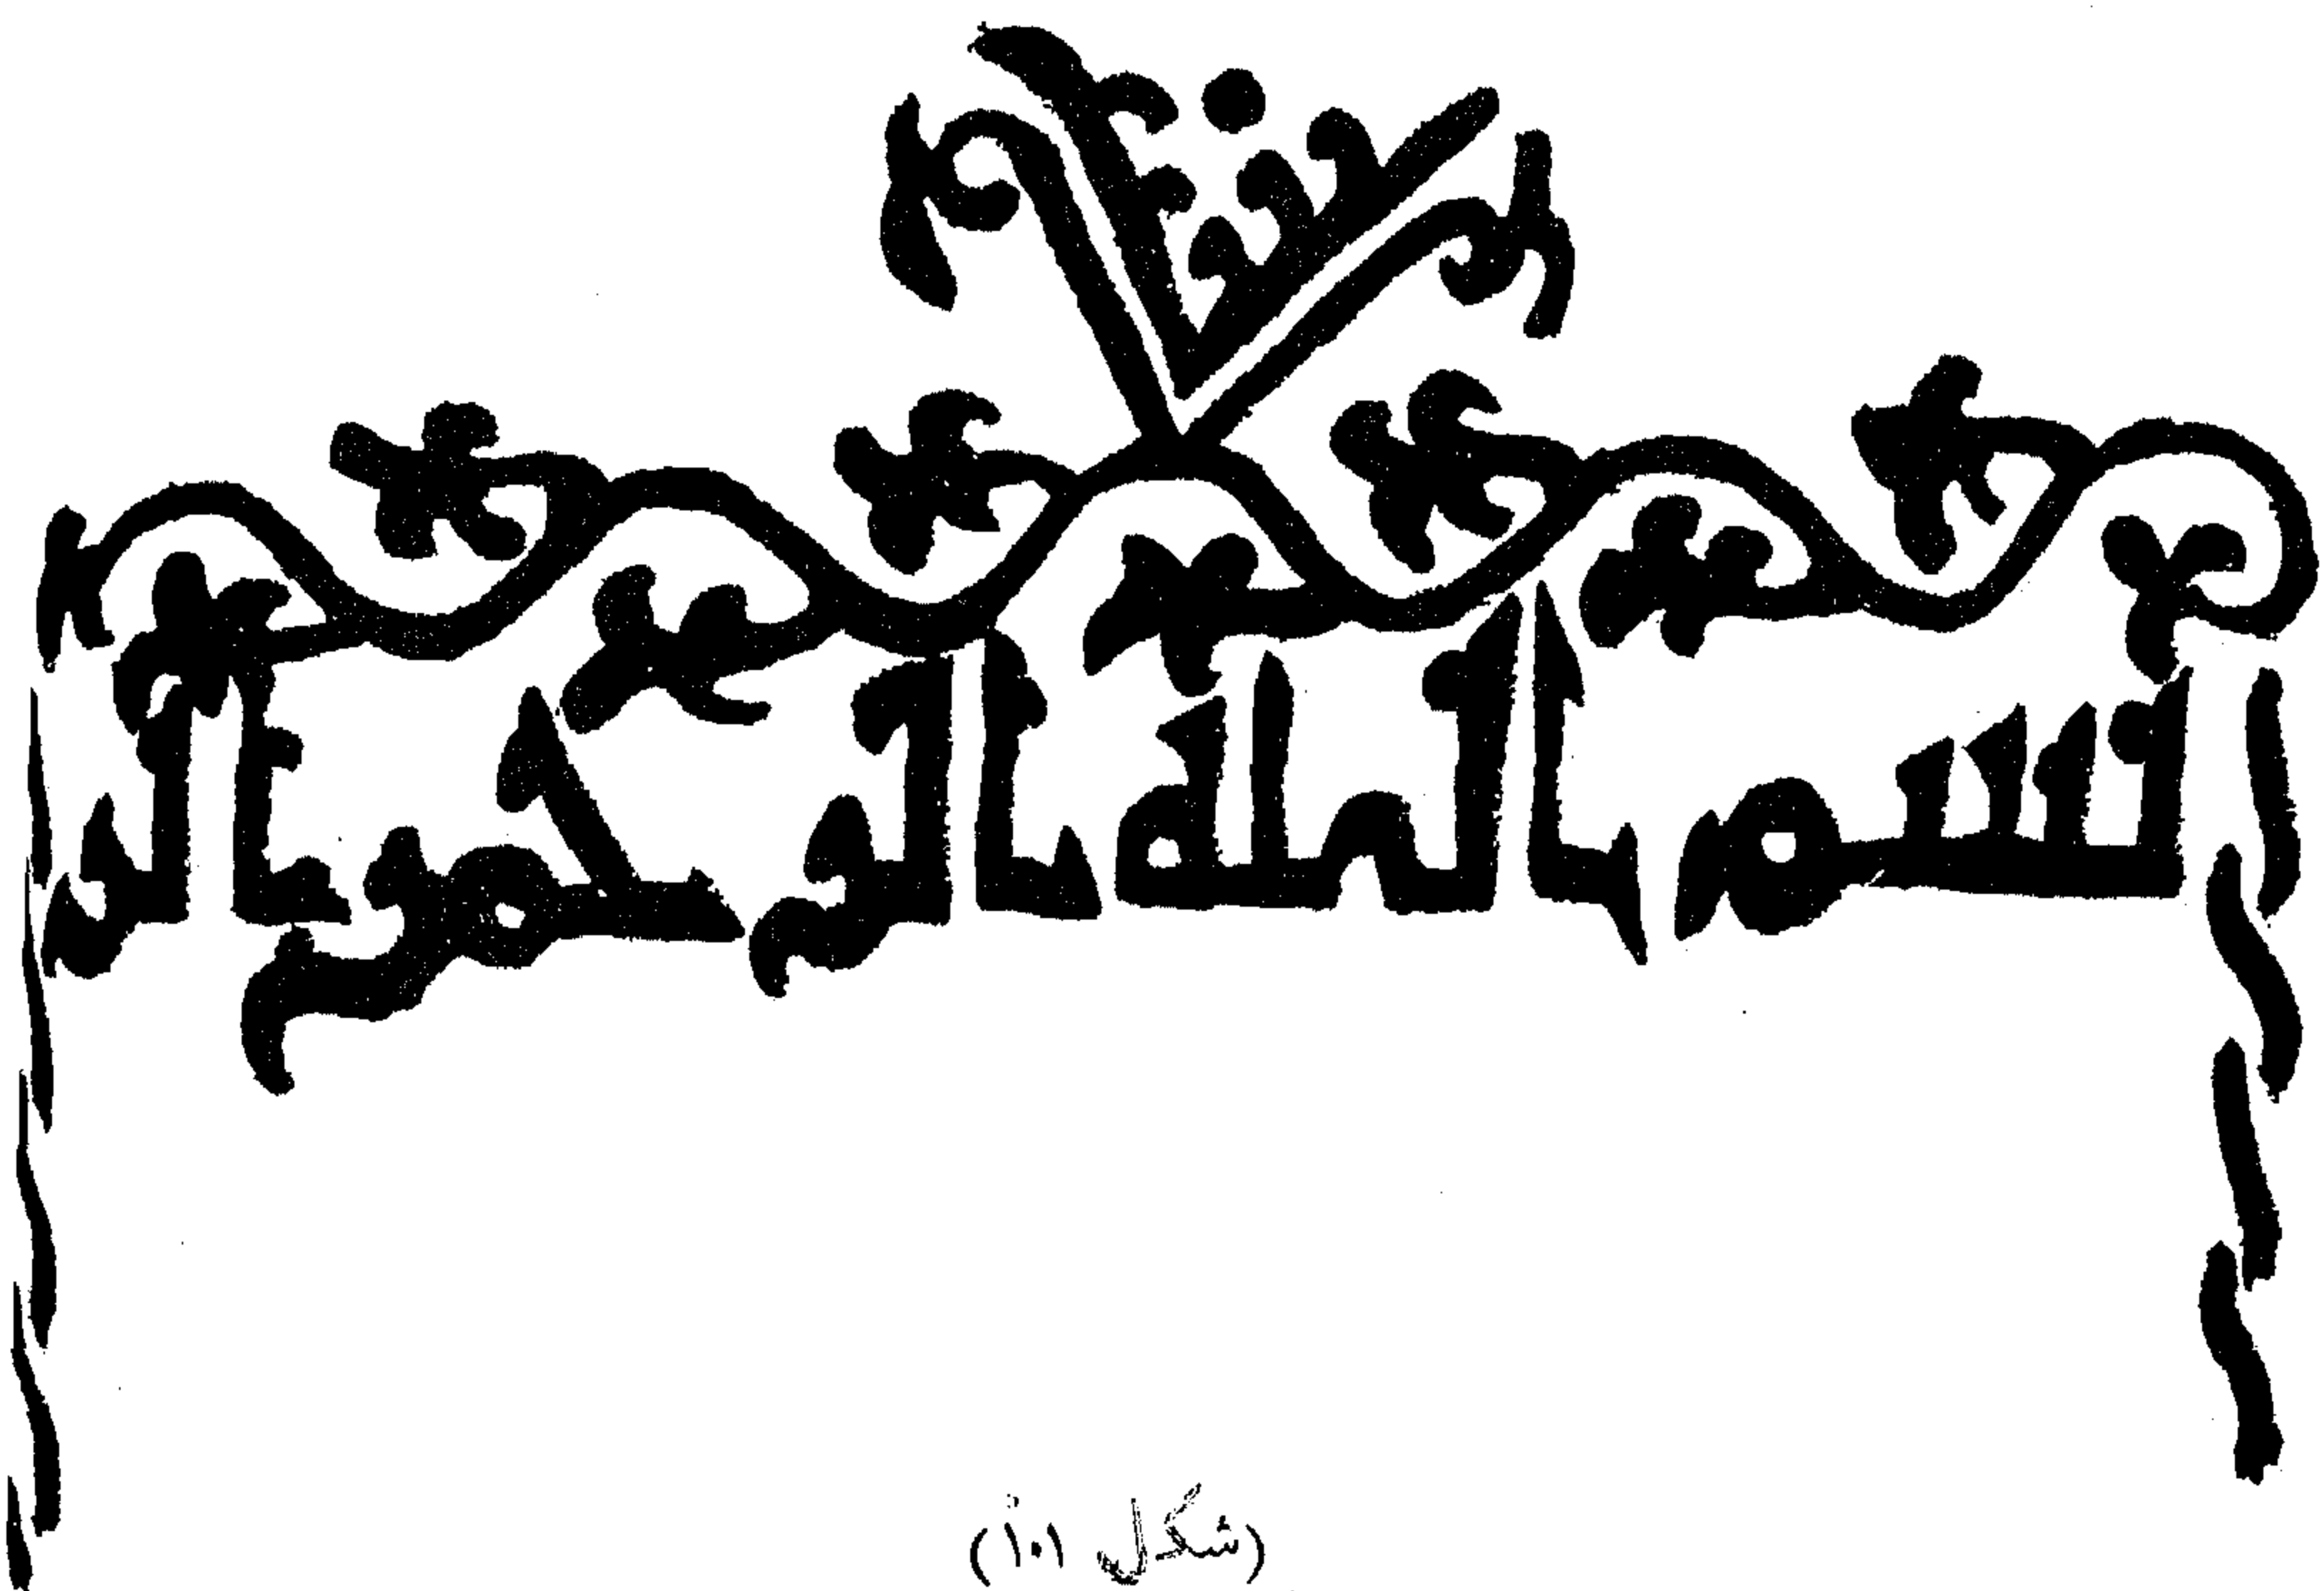 بسم الله الرحمن الر
(شكل ١٠أ)